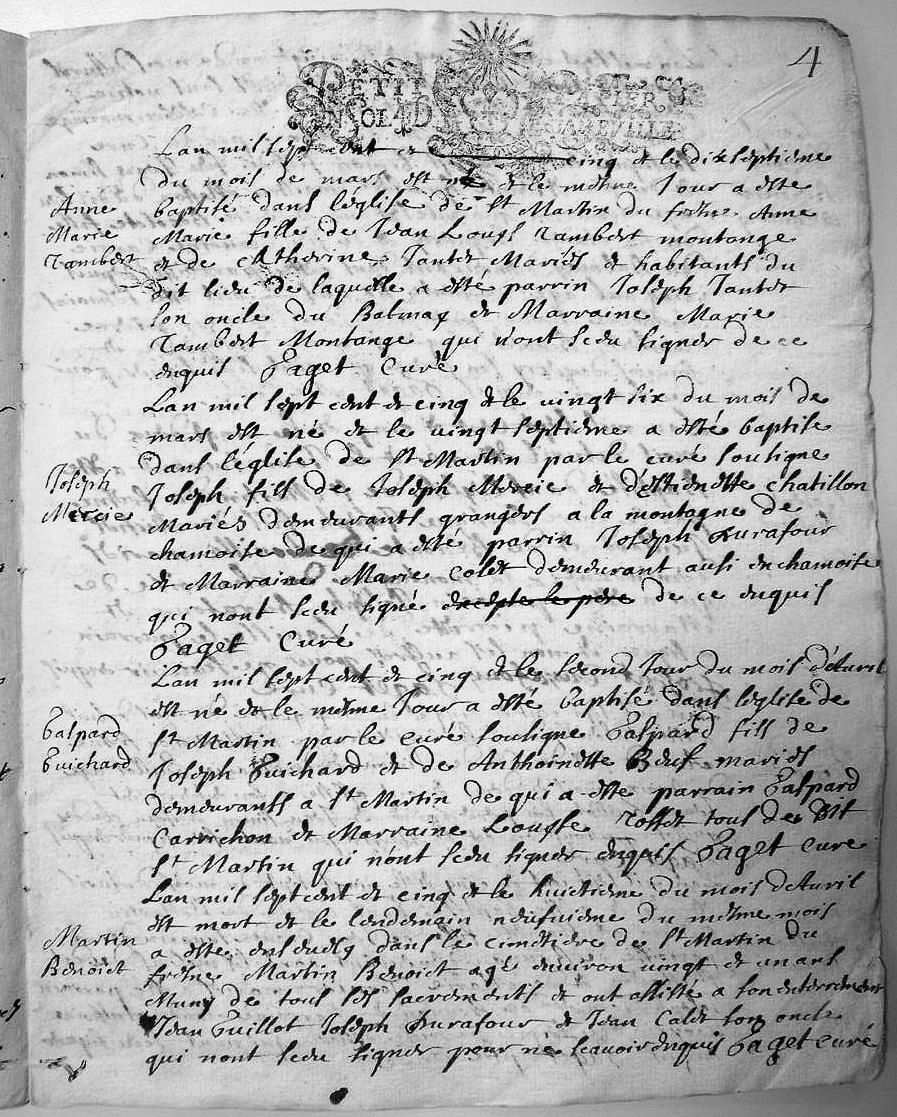 4
PETIT PAPIER
Lan mil sept cent et cinq et le dixseptieme
du mois de mars est né et le mesme Jour a este
Anne baptisé dans l'église de St Martin du fresne Anne
Marie Marie fille de Jean Louys Tambert montange
Tambert et de Catherine Tantet Mariés et habitants du
dit lieu de laquelle a esté parrin Joseph Tantet
son oncle du Balmay et Marraine Marie
Tambert Montange qui n'ont sceu signer de ce
enquis Paget Curé
Lan mil sept cent et cinq et le vingt six du mois de
mars est né et le vingt septieme a esté baptise
dans l'église de St Martin par le curé sousigne
Joseph Joseph fils de Joseph Mercie et d'estienette chatillon
Mercie Mariés demeurants grangers a la montagne de
chamoise de qui a esté parrin Joseph Durafour
et Marraine Marie Colet demeurant ausi en chamoise
qui nont sceu signé excepte le pere de ce enquis
Paget Curé
Lan mil sept cent et cinq et le second Jour du mois d'Avril
est né et le mesme Jour a esté baptisé dans l'eglise de
Gaspard St Martin par le curé sousigne Gaspard fils de
Guichard Joseph Guichard et de Anthoinette Beuf mariés
demeurants a St Martin de qui a este parrain Gaspard
Carrichon et Marraine Louyse Tosset tous de Dit
St Martin qui n'ont sceu signer enquis Paget Curé
Lan mil sept cent et cinq et le huictieme du mois d'Avril
est mort et le lendemain neufvieme du mesme mois
Martin a este ensevely dans le cimetiere de St Martin du
Benoict fresne Martin Benoict agé environ vingt et un ans
Muny de tous ses sacrements et ont assisté a son enterrement
Jean Guillot Joseph Durafour et Jean Calet son oncle
qui nont sceu signer pour ne scavoir enquis Paget curé